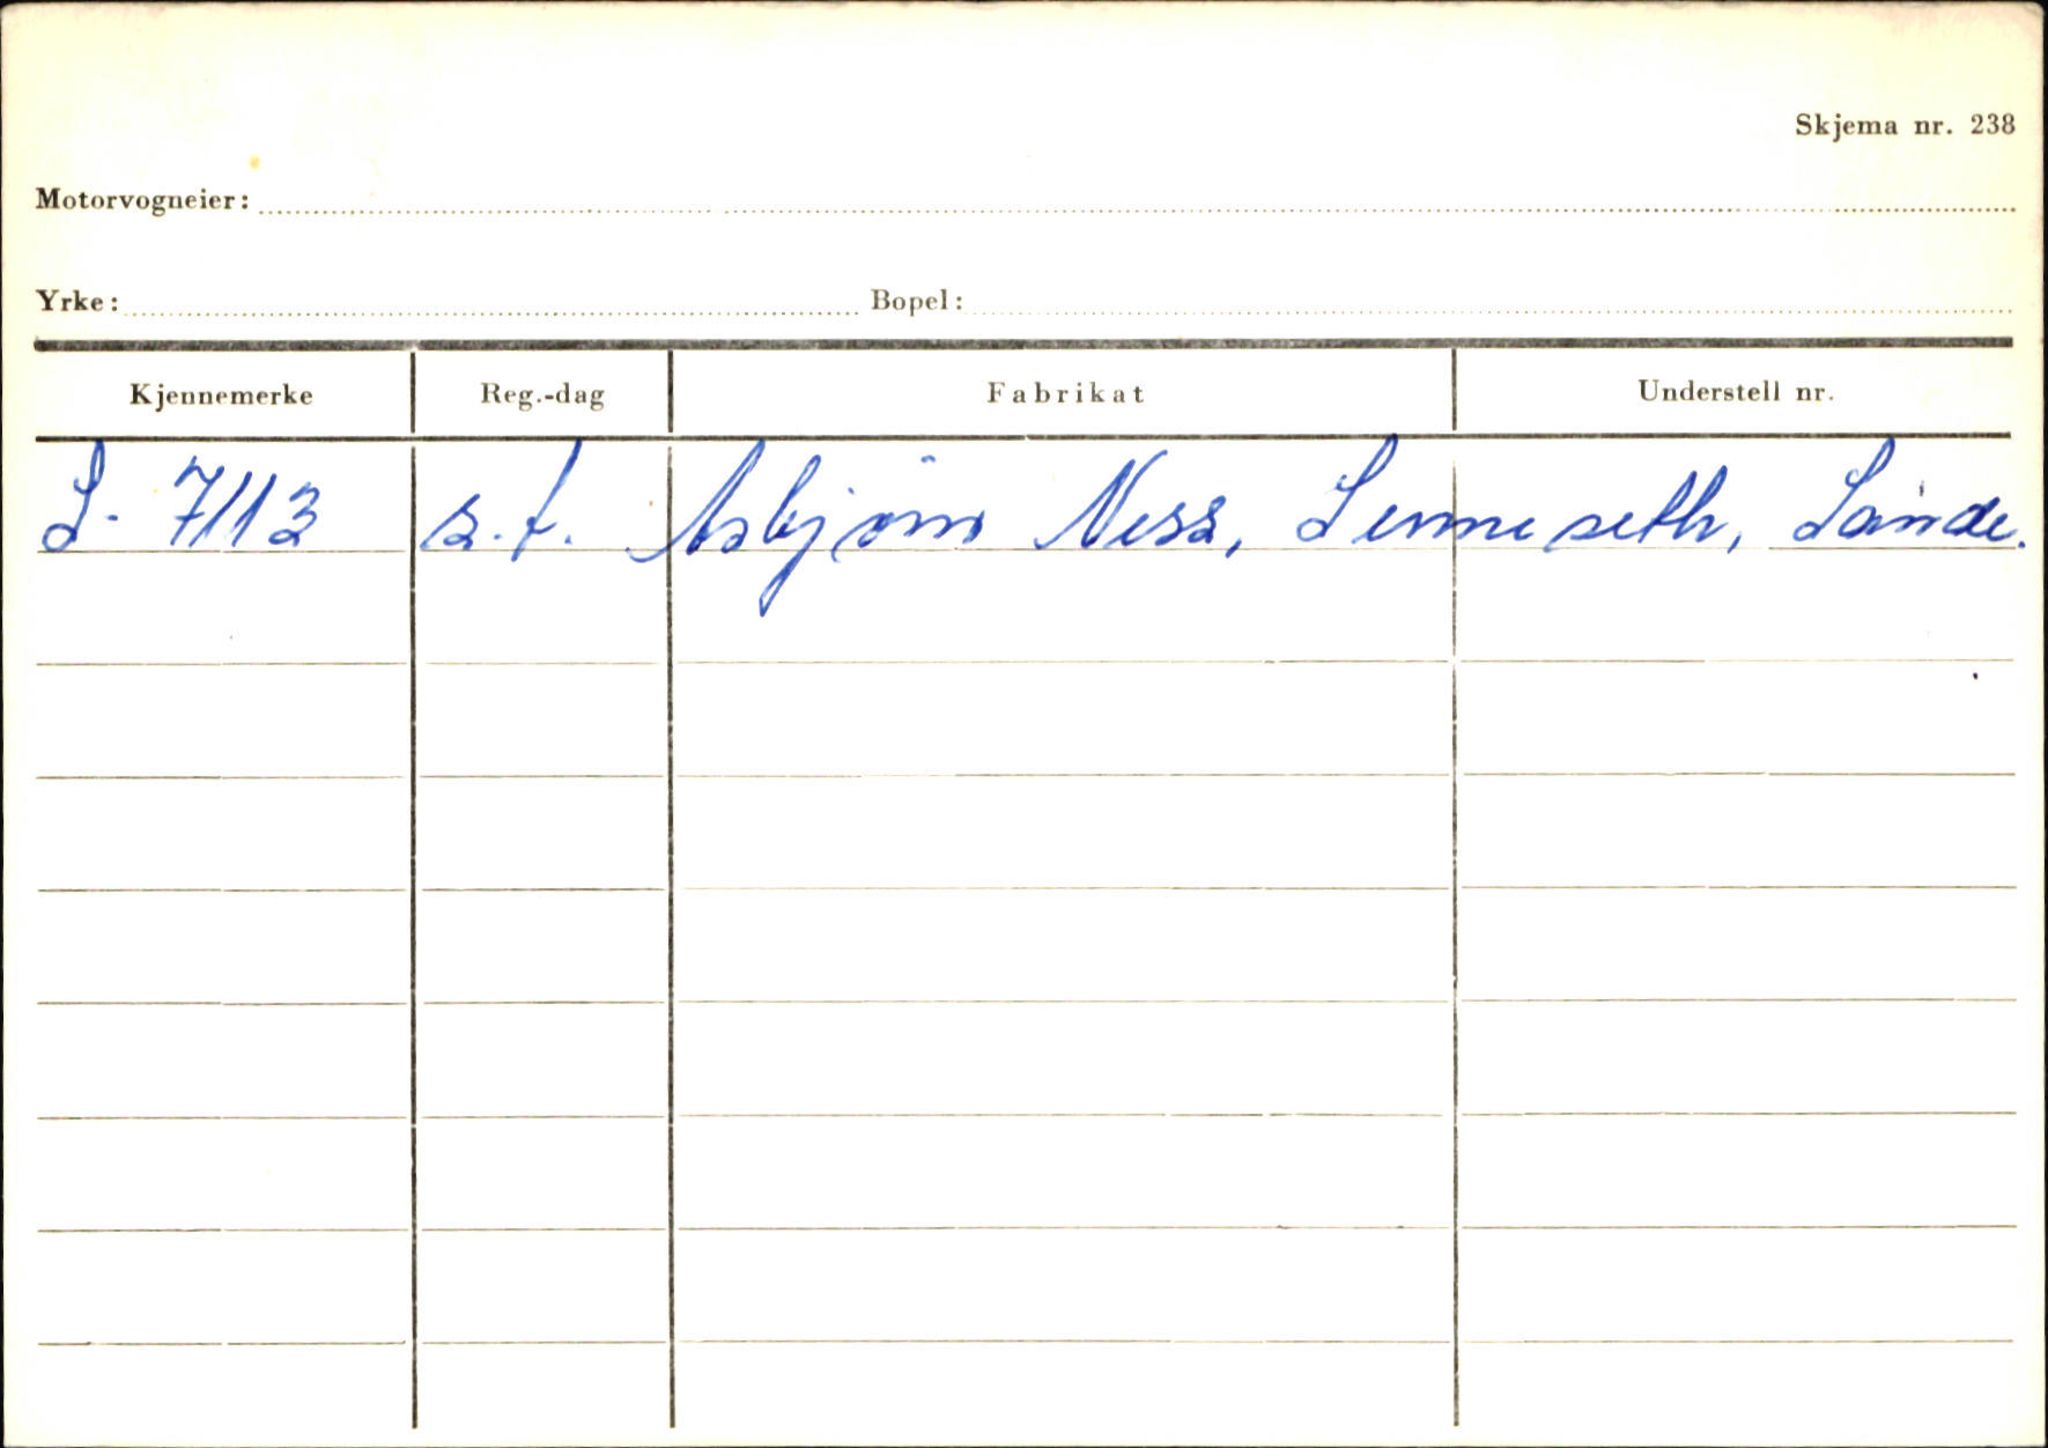 Skjema nr. 238
Motorvogneier:
Yrke: Bopel:
Kjennemerke Reg.-dag Fabrikat Understell nr.
S- 7113 s.f. Asbjörn Ness, Lenneseth,